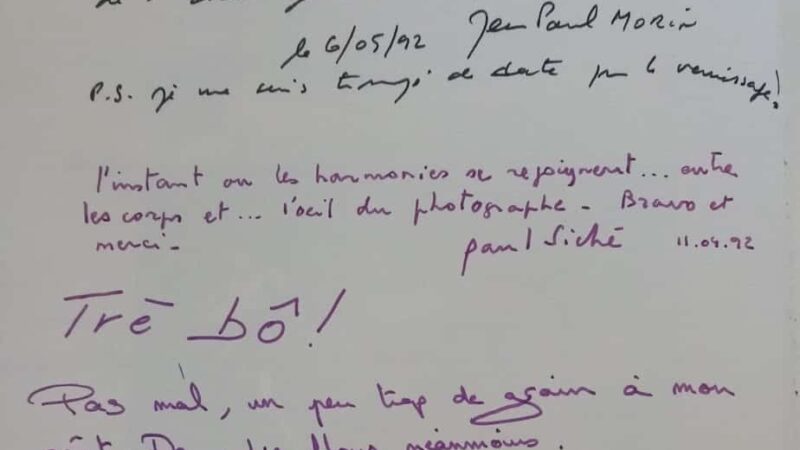 le 6/05/92 Jean Paul MORIN
P.S. je me suis trompé de date pour le vernissage!
l'instant ou les harmonies se rejoignent... entre
les corps et... l'oeil du photographe - Bravo et
merci -
paul Siché 11.04.92
Trē bô!
Pas mal, un peu trop de grain à mon
néanmoins.